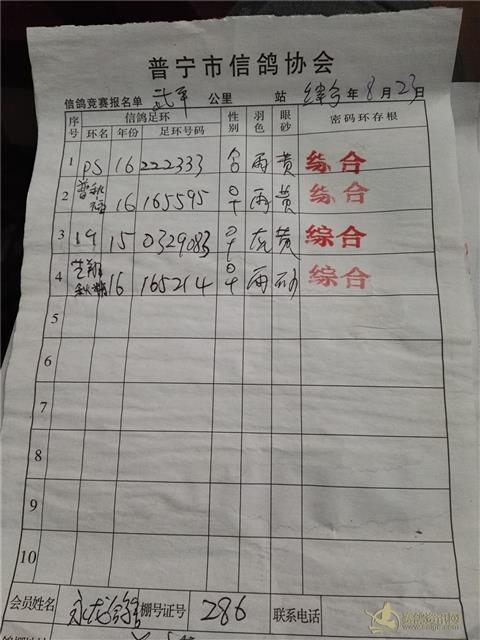 普宁市信鸽协会
信鸽竞赛报名单 武平 公里 站 综合 年 8 月 23
序号 信鸽足环 性别 羽色 眼砂 密码环存根
环名 年份 足环号码
1 PS 16 222333 雨 黄 综合
2 普 16 165595 ♀ 雨 黄 综合
3 19 15 0329083 ♀ 灰 黄 综合
4 16 165214 ♀ 雨 砂 综合
5
6
7
8
9
10
会员姓名 棚号证号 286 联系电话